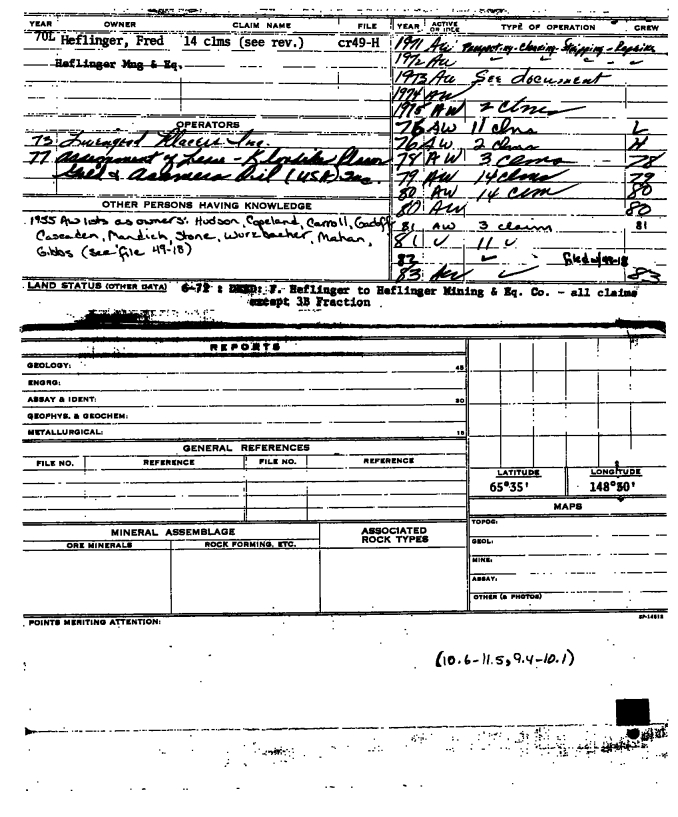 YEAR OWNER CLAIM NAME FILE
70L Heflinger, Fred 14 clms (see rev.) cr49-H
Heflinger Mng & Eq.
OPERATORS
73 Livengood Placers Inc.
77 assignment of Lease - Klondike Placer
Gold & Asamera Oil (USA) Inc.
OTHER PERSONS HAVING KNOWLEDGE
1955 AW lists as owners: Hudson, Copeland, Carroll,
Cascaden, Mandich, Stone, Wurzbacher, Mahan,
Gibbs (see file 49-18)
YEAR ACTIVE OR IDLE TYPE OF OPERATION CREW
1971 AW Prospecting - Clearing - Stripping - Repairs
1972 AW
1973 AW See document
1974 AW
1975 AW 2 clms
76 AW 11 clms L
76 AW 2 clms H
78 AW 3 clms 78
79 AW 14 clms 79
80 AW 14 clm 80
80 AW 80
81 AW 3 claim 81
81 ✓ 11 ✓
82 ✓ filed w/49-18
83 AW ✓ 83
LAND STATUS (OTHER DATA) 6-72 : DEED: F. Heflinger to Heflinger Mining & Eq. Co. - all claims
except 3B Fraction
REPORTS
GEOLOGY: 45
ENGRG:
ASSAY & IDENT: 30
GEOPHYS. & GEOCHEM:
METALLURGICAL: 15
GENERAL REFERENCES
FILE NO. REFERENCE FILE NO. REFERENCE
LATITUDE LONGITUDE
65°35' 148°30'
MAPS
TOPOG:
GEOL:
MINE:
ASSAY:
OTHER (& PHOTOS)
MINERAL ASSEMBLAGE ASSOCIATED ROCK TYPES
ORE MINERALS ROCK FORMING, ETC.
POINTS MERITING ATTENTION:
(10.6-11.5, 9.4-10.1)